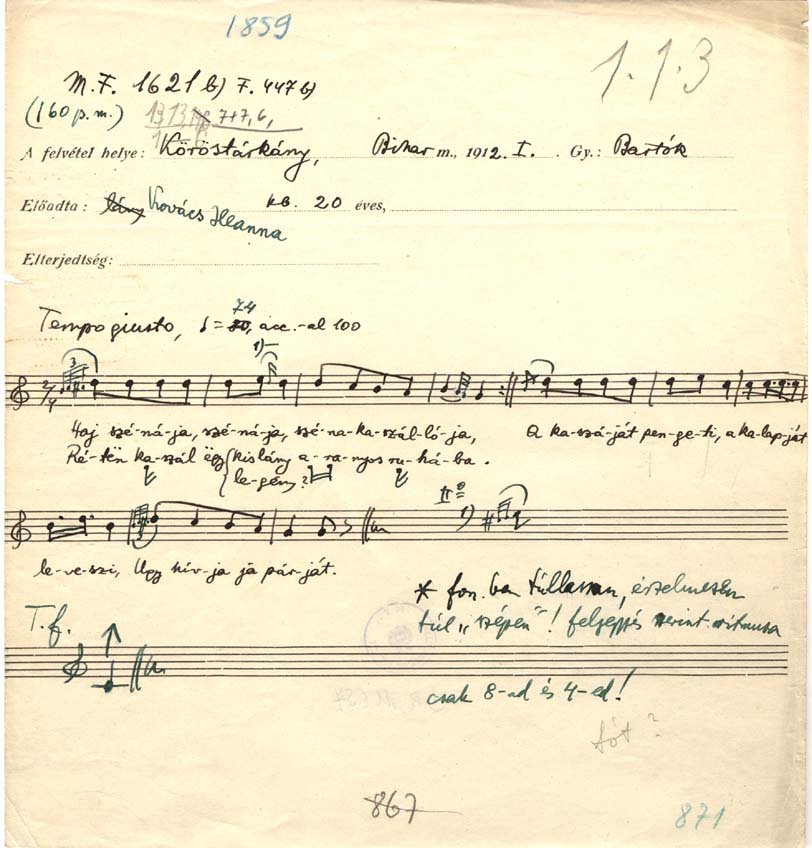 1859
1.1.3
M.F. 1621 b) F. 447 b)
(160 p.m.) 13, 13, 7+7, 6,
A felvétel helye: Köröstárkány, Bihar m., 1912. I. Gy.: Bartók
Előadta: lány Kovács Ileanna kb. 20 éves,
Elterjedtség:
Tempo giusto, ♩ = 80, 74 acc. - al 100
1) –
3
2/4
Haj szé-ná-ja, szé-ná-ja, szé-na-ka-szál-ló-ja, A ka-szá-ját pen-ge-ti, a ka-lap-ját
Ré-tën ka-szál ëgy kislány a-ra-nyos ru-há-ba.
le-gény?
1)
le-ve-szi, Úgy hív-ja jă pár-ját.
* fon. ban túllassan, érzelmesen
T.f. túl "szépen"! feljegyzés szerint ritmusa
csak 8-ad és 4-ed!
tót?
867
871